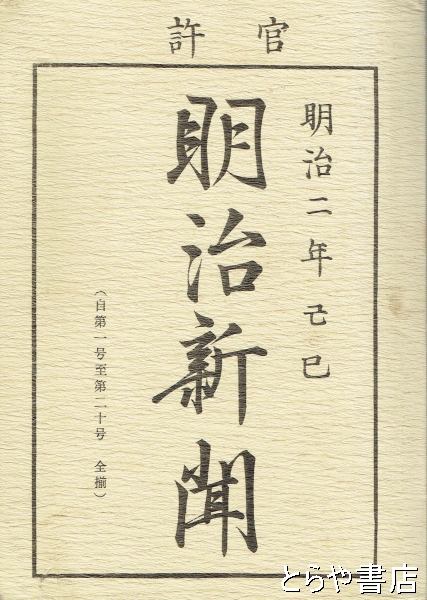 官許
明治二年己巳
明治新聞
（自第一号至第二十号　全揃）
とらや書店